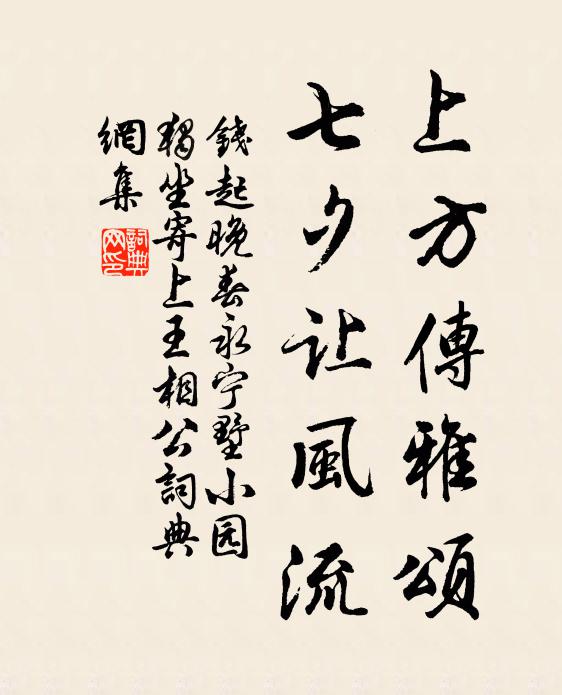 上方傳雅頌
七夕让風流
錢起晚春永宁墅小园
獨坐寄上王相公詞典
網集
詞典
网印